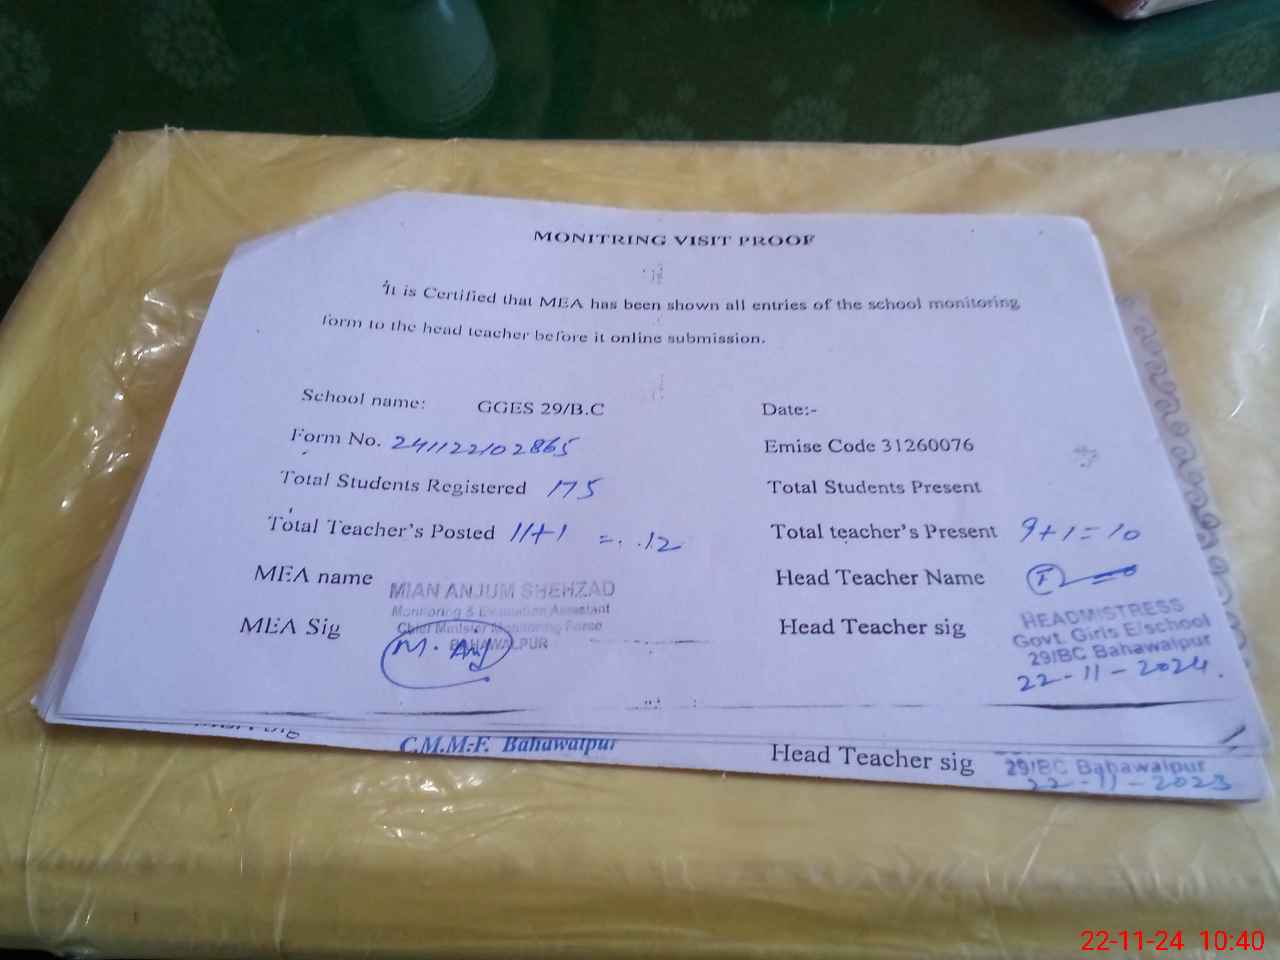 MONITRING VISIT PROOF
It is Certified that MEA has been shown all entries of the school monitoring
form to the head teacher before it online submission.
School name: GGES 29/B.C Date:-
Form No. 241122102865 Emise Code 31260076
Total Students Registered 175 Total Students Present
Total Teacher's Posted 11+1 = 12 Total teacher's Present 9+1=10
MEA name MIAN ANJUM SHEHZAD Head Teacher Name
Monitoring & Evaluation Assistant
MEA Sig Chief Minister Monitoring Force Head Teacher sig HEADMISTRESS
BAHAWALPUR Govt. Girls E/school
M. Anj 29/BC Bahawalpur
22-11-2024.
C.M.M.F. Bahawalpur Head Teacher sig 29/BC Bahawalpur
22-11-2023
22-11-24 10:40